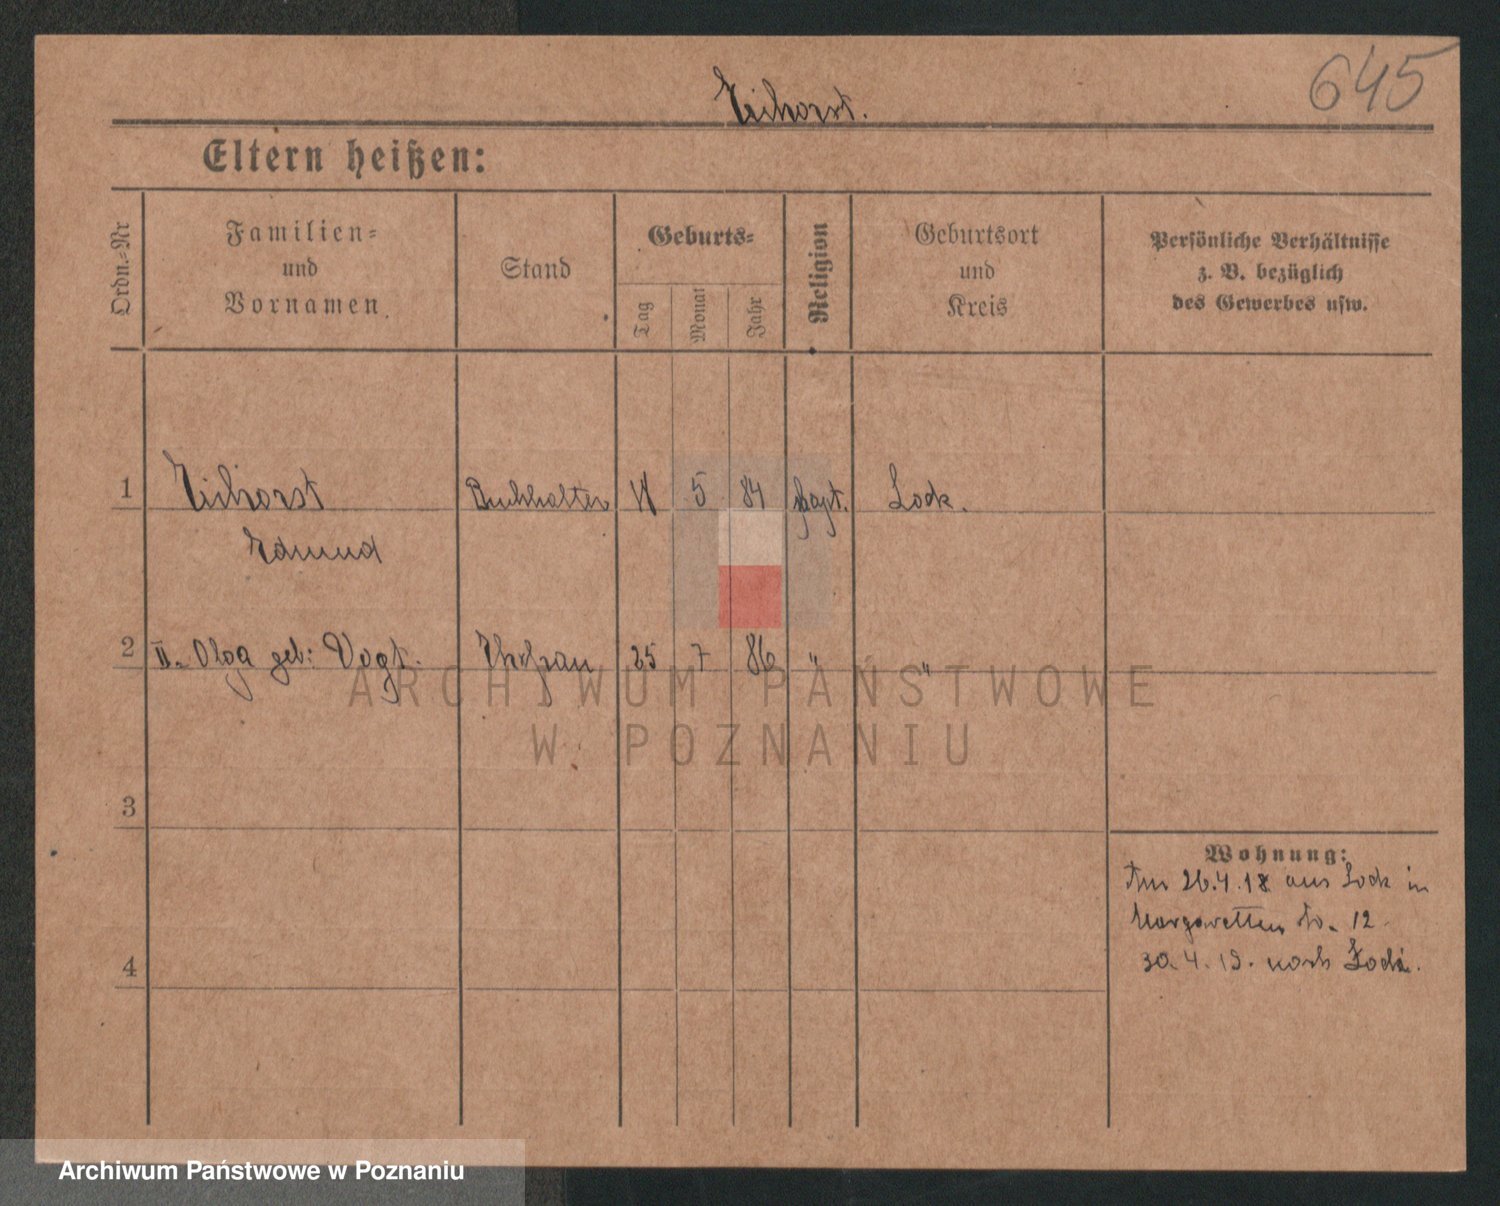 645
Eichorst.
Eltern heißen:
Ordn.-Nr
Familien-
und
Vornamen.
Stand
Geburts-
Tag
Monat
Jahr
Religion
Geburtsort
und
Kreis
Persönliche Verhältnisse
z. B. bezüglich
des Gewerbes usw.
1 Eichorst Buchhalter 5 84 Lodz.
Edmund
2 II. Olga geb: Vogt. Ehefrau 25 7 86 " "
3
4
Wohnung:
Am 26.4.18 aus Lodz in
Margaretten 12
30.4.19. nach Lodz.
ARCHIWUM PAŃSTWOWE
W POZNANIU
Archiwum Państwowe w Poznaniu